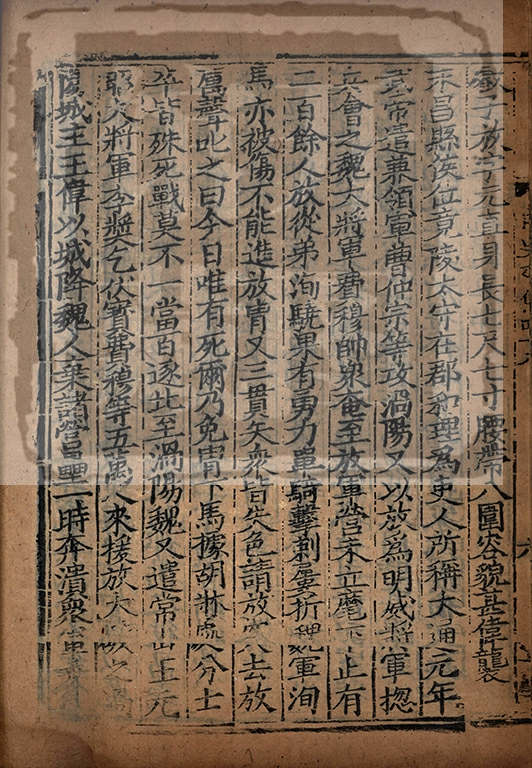 叡子放字元直身長七尺七寸腰帶八圍容貌甚偉襲
永昌縣侯位竟陵太守在郡和理為吏人所稱大通元年
武帝遣兼領軍曹仲宗等攻渦陽又以放爲明威將軍揔
兵會之魏大將軍費穆帥衆奄至放軍營未立麾下止有
二百餘人放從弟洵驍果有勇力單騎擊刺屢折魏軍洵
馬亦被傷不能進放冑又三貫矢衆皆失色請放突去放
厲聲叱之曰今日唯有死爾乃免冑下馬據胡牀處分士
卒皆殊死戰莫不一當百逐北至渦陽魏又遣常山王元
昭大將軍李獎乞伏寶費穆等五萬人來援放大敗之渦
陽城主王偉以城降魏人棄諸營壘一時奔潰衆軍